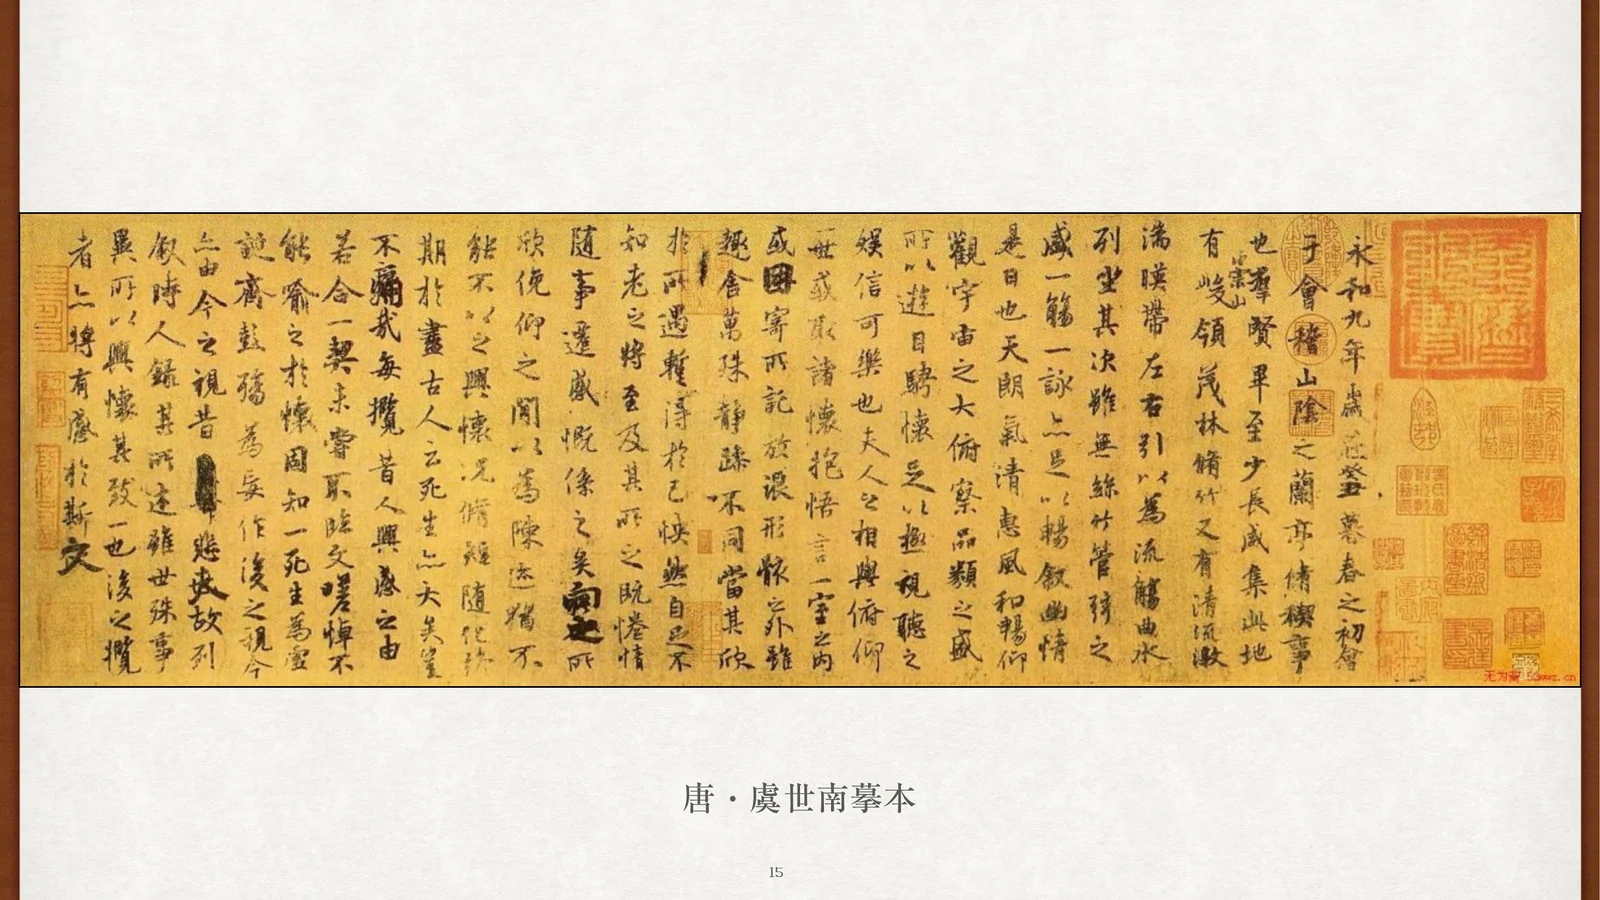 永和九年歲在癸丑暮春之初會
于會稽山陰之蘭亭脩稧事
也羣賢畢至少長咸集此地
有崇山峻領茂林脩竹又有清流激
湍暎帶左右引以為流觴曲水
列坐其次雖無絲竹管弦之
盛一觴一詠亦足以暢敘幽情
是日也天朗氣清惠風和暢仰
觀宇宙之大俯察品類之盛
所以遊目騁懷足以極視聽之
娛信可樂也夫人之相與俯仰
一世或取諸懷抱悟言一室之內
或因寄所託放浪形骸之外雖
趣舍萬殊靜躁不同當其欣
於所遇暫得於己怏然自足不
知老之將至及其所之既惓情
隨事遷感慨係之矣向之所
欣俛仰之閒以為陳迹猶不
能不以之興懷況脩短隨化終
期於盡古人云死生亦大矣豈
不痛哉每攬昔人興感之由
若合一契未嘗不臨文嗟悼不
能喻之於懷固知一死生為虛
誕齊彭殤為妄作後之視今
亦由今之視昔悲夫故列
敘時人錄其所述雖世殊事
異所以興懷其致一也後之攬
者亦將有感於斯文
唐·虞世南摹本
15